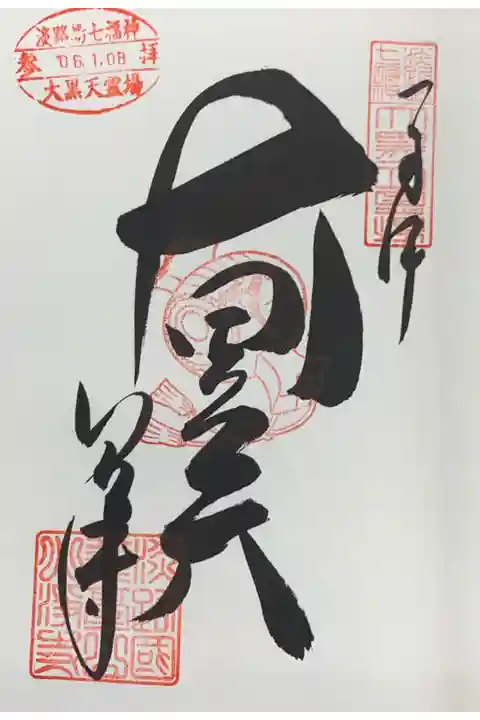 淡路島七福神
参 '06.1.08 拝
大黒天霊場
奉拝
大黒天
八浄寺
淡路國
八浄寺